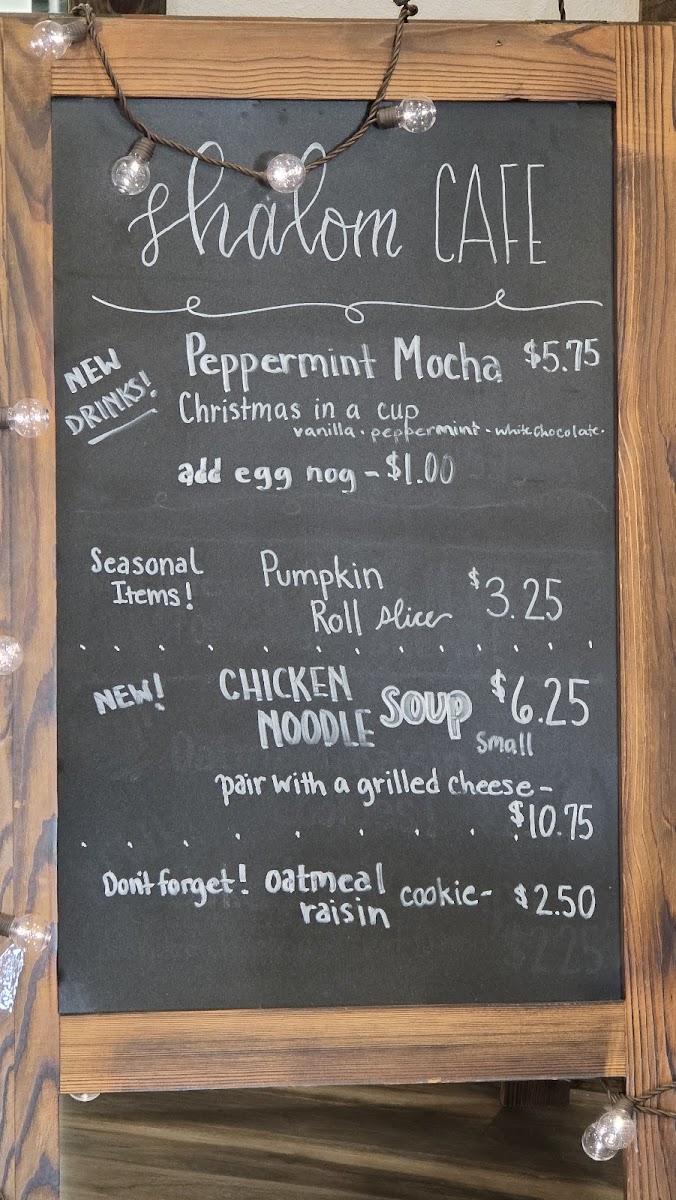 shalom CAFE
NEW
DRINKS!
Peppermint Mocha $5.75
Christmas in a cup
vanilla · peppermint - white chocolate.
add egg nog - $1.00
Seasonal
Items!
Pumpkin
Roll slice $3.25
NEW!
CHICKEN
NOODLE SOUP $6.25
small
pair with a grilled cheese -
$10.75
Don't forget! oatmeal
raisin cookie - $2.50
$2.25